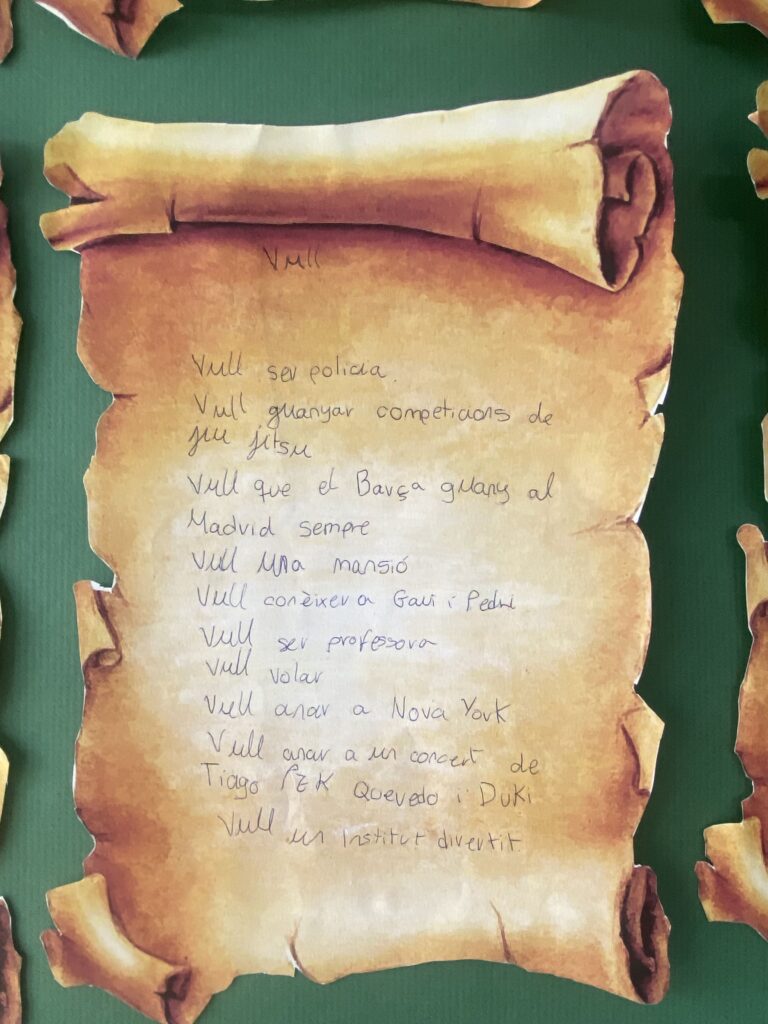 Vull
Vull ser policia.
Vull guanyar competicions de
jiu jitsu
Vull que el Barça guany al
Madrid sempre
Vull una mansió
Vull conèixer a Gavi i Pedri
Vull ser professora
Vull volar
Vull anar a Nova York
Vull anar a un concert de
Tiago PZK Quevedo i Duki
Vull un institut divertit